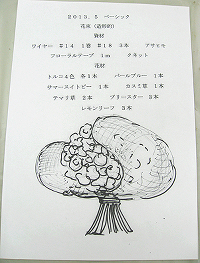 ２０１３．５　ベーシック
花束（造形的）
資材
ワイヤー　＃１４　１巻　＃１８　３本　アサヒモ
フローラルテープ　１ｍ　クネット
花材
トルコ４色　各１本　パールブルー　１本
サマースイトピー　１本　カスミ草　１本
テマリ草　２本　ブリースター　３本
レモンリーフ　３本